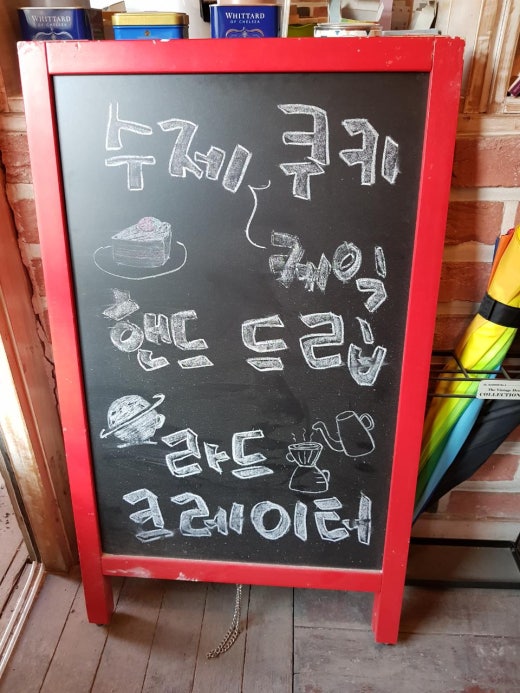 WHITTARD
OF CHELSEA
WHITTARD
OF CHELSEA
수제 쿠키
케잌
핸드 드립
라드
크레이터
The Vintage
COLLECTION